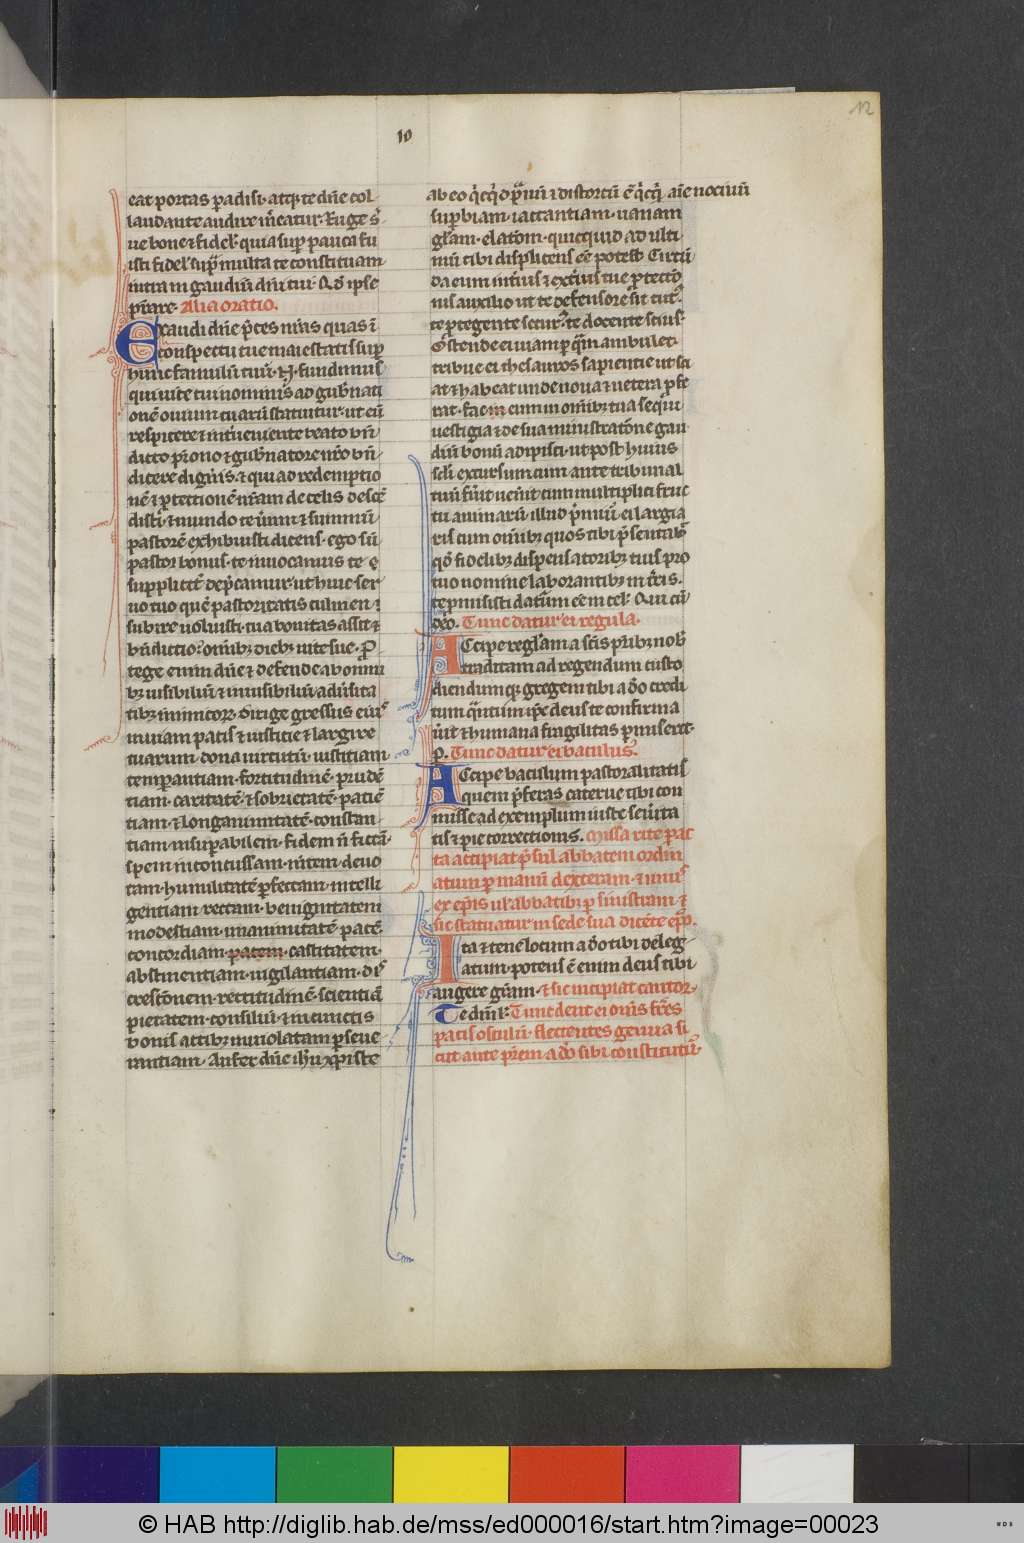 12
10
eat portas paradisi. atq; te dn̄e col
laudante audire m̄eatur. Euge s̄
ue bone ⁊ fidel̛ quia sup̱ pauca fu
isti fidel̛ sup̄ multa te constituam
intra in gaudiū dn̄i tui. Qd̄ ipse
p̄stare. Alia oratio.
Exaudi dn̄e p̄ces nr̄as quas ī
conspectu tue maiestatis sup̱
hunc famulū tuū. N. fundimus
qui uite tui nominis ad gub̄nati
onē ouium tuarū statuitur. ut eū
respicere ⁊ int̄ueniente beato bn̄
dicto p̄rono ⁊ gub̄natore nr̄o bn̄
dicere digneris. ⁊ qui ad redemptio
nē ⁊ p̱tectionē nr̄am de celis descē
disti. ⁊ mundo te unum ⁊ summū
pastorē exhibuisti dicens. ego sū
pastor bonus. te inuocamus te ⁊
supplicit̄ dep̄camur. ut huic ser
uo tuo quē pastoritatis culmen ⁊
subire uoluisti. tua bonitas assit ⁊
bn̄dictio. om̄ibꝫ diebꝫ uite sue. P̱
tege eum dn̄e ⁊ defende ab omni
bꝫ uisibiliū ⁊ inuisibiliū aduersita
tibꝫ inimicoꝝ. dirige gressus eius
in uiam pacis ⁊ iusticie ⁊ largire
tuarum dona uirtutū. iustitiam
temp̱antiam. fortitudinē. prudē
tiam. caritatē. ⁊ sobrietatē. patiē
tiam. ⁊ longanimitatē. constan
tiam insup̱abilem. fidem n̄ fictā.
spem inconcussam. m̄tem deuo
tam. humilitatē p̱fectam. intelli
gentiam rectam. benignitatem
modestiam. unanimitatē. pacē.
concordiam. pacem. castitatem.
abstinentiam. uigilantiam. dis
cretōnem. rectitudinē. scientiā
pietatem. consiliū. ⁊ in cunctis
bonis actibꝫ inuiolatam p̱seue
rantiam. Aufer dn̄e ih̄u xp̱iste
ab eo q̇cq̇d p̄uū ⁊ distortū ē q̇cq̇ aīe nociuū
sup̱biam. iactantiam. uanam
gl̄am. elatōm. quicquid ad ulti
mū tibi displicens eē potest. Custū
da eum int̄ius ⁊ ext̄ius tue p̱tectō
nis auxilio ut te defensore sit tut̛.
te p̱tegente secur̛. te docente scius.
Ostende ei uiam p̱ quam ambulet.
tribue ei thesauros sapientie ut sci
at ⁊ habeat unde noua ⁊ uetera p̱fe
rat. fac eum in om̄ibꝫ tua sequi
uestigia ⁊ de sua ministratōne gau
diū bonū adipisci. ut post huius
scl̄i excursum cum ante tribunal
tuū fuerit uenit cum multiplici fruc
tu animarū. illud p̄miū ei largia
ris cum om̄ibꝫ quos tibi p̄sentab̄
qd̄ fidelibꝫ dispensatoribꝫ tuis pro
tuo nomine laborantibꝫ in t̄ris.
te p̱misisti daturum eē in cel̛. Qui cū
deo. Tunc datur ei regula.
Accipe regl̄am a sc̄is pr̄ibꝫ nob̛
traditam ad regendum custo
diendumq; gregem tibi a do credi
tum quantum ip̄e deus te confirma
uerit ⁊ humana fragilitas p̱miserit.
p. Tunc datur ei baculus.
Accipe baculum pastoralitatis
quem p̄feras caterue tibi con
misse ad exemplum iuste seuerita
tis ⁊ pie correctionis. Missa rite pac
ta accipiat p̄sul abbatem ordin
atum p̱ manū dexteram. ⁊ unus
ex ep̄is ul̛ abbatibꝫ p̱ sinistram. ⁊
sic statuatur in sede sua dicēte ep̄o.
Ita ⁊ tene locum a do tibi deleg
atum. potens ē enim deus tibi
augere gr̄am. ⁊ sic incipiat cantor.
Te dm̄ l. Tunc dent ei om̄s fr̄es
pacis osculū. flectentes genua si
cut ante p̄rem a do sibi constitutū.
© HAB http://diglib.hab.de/mss/ed000016/start.htm?image=00023